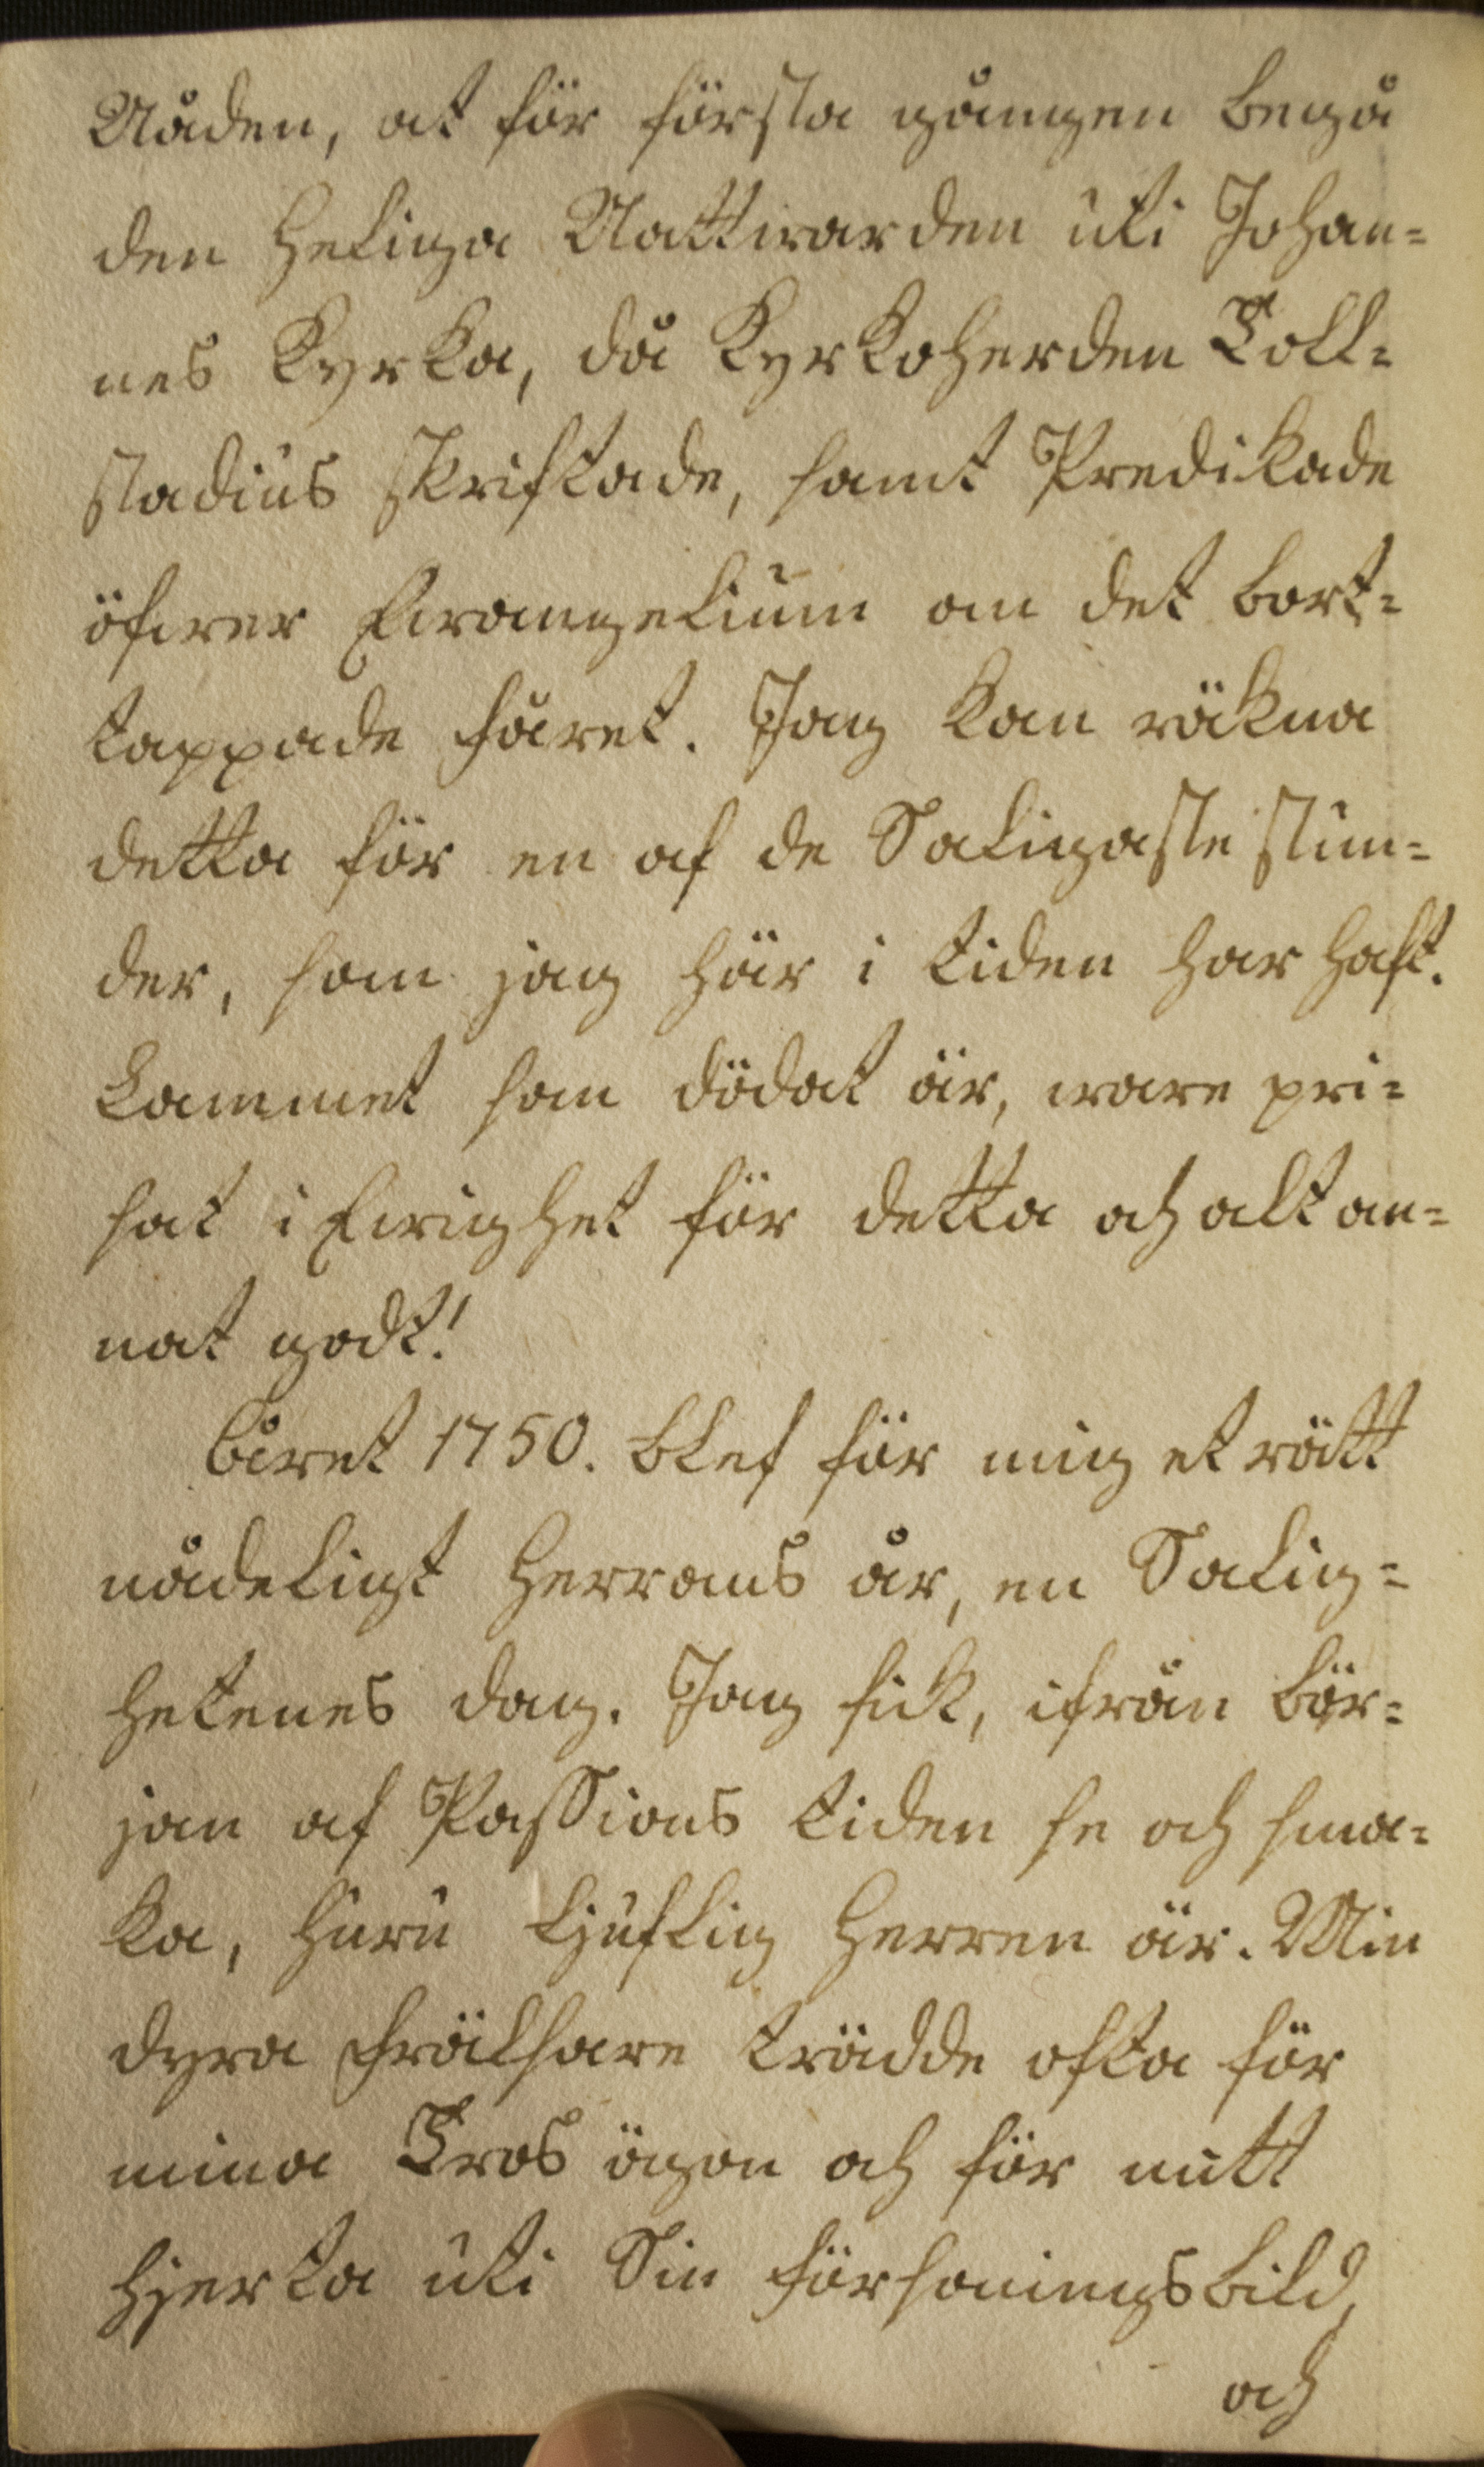 Nåden, at för första gången begå
den Heliga Nattwarden uti Johan=
nes Kyrka, då Kyrkoherden Toll=
stadius skriftade, samt Predikade
öfwer Ewangelium om det bort=
tappade fåret. Jag kan räkna
detta för en af de Saligaste stun=
der, som jag här i tiden har haft.
Lammet som dödat är, ware pri=
sat i Ewighet för detta och alt an=
nat godt!
Året 1750. blef för mig et rätt
nådeligt Herrans år, en Salig=
hetenes dag. Jag fick, ifrån bör=
jan af Passions tiden se och sma=
ka, huru ljuflig Herren är. Min
dyra Frälsare trädde ofta för
mina Tros ögon och för mitt
hjerta uti Sin försonings bild,
och